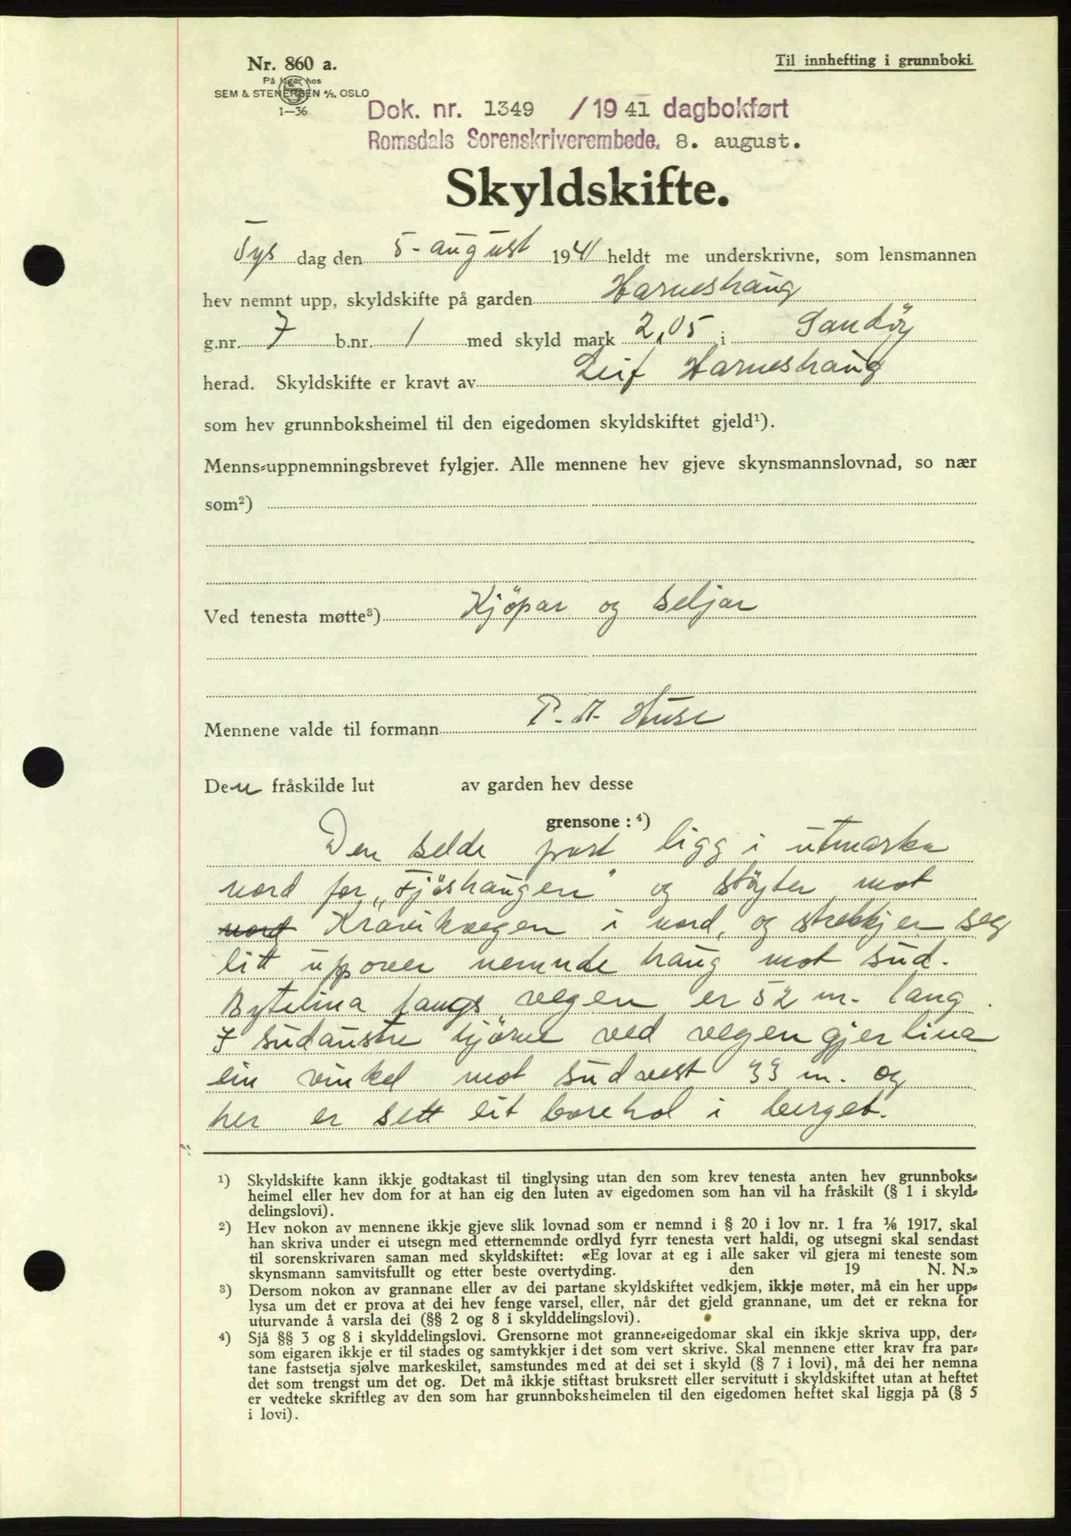 Nr. 860 a.
Til innhefting i grunnboki
På lager hos
SEM & STENERSEN A/S, OSLO
1—36
Dok. nr. 1349 / 19 41 dagbokført
Romsdals Sorenskriverembede. 8. august.
Skyldskifte.
Tys dag den 5- august 1941 heldt me underskrivne, som lensmannen
hev nemnt upp, skyldskifte på garden Harneshaug
g.nr. 7 b.nr. 1 med skyld mark 2,05 i Sandöy
herad. Skyldskifte er kravt av Leif Harneshaug
som hev grunnboksheimel til den eigedomen skyldskiftet gjeld¹).
Menns-uppnemningsbrevet fylgjer. Alle mennene hev gjeve skynsmannslovnad, so nær
som²)
Ved tenesta møtte³) Kjöpar og seljar
Mennene valde til formann P. A. Huse
Den fråskilde lut av garden hev desse
grensone: ⁴)
Den selde part ligg i utmarka
nord for „Fjöshaugen" og stöyter mot
nord Kravikvegen i nord, og strekkjer seg
litt uppover nemnde haug mot sud.
Bytelina langs vegen er 52 m. lang.
I sudaustre hjörne ved vegen gjer lina
ein vinkel mot sudvest 33 m. og
her er sett eit borehol i berget.
¹) Skyldskifte kann ikkje godtakast til tinglysing utan den som krev tenesta anten hev grunnboks-
heimel eller hev dom for at han eig den luten av eigedomen som han vil ha fråskilt (§ 1 i skyld-
delingslovi).
²) Hev nokon av mennene ikkje gjeve slik lovnad som er nemnd i § 20 i lov nr. 1 fra 1/6 1917, skal
han skriva under ei utsegn med etternemnde ordlyd fyrr tenesta vert haldi, og utsegni skal sendast
til sorenskrivaren saman med skyldskiftet: «Eg lovar at eg i alle saker vil gjera mi teneste som
skynsmann samvitsfullt og etter beste overtyding. den 19 N. N.»
³) Dersom nokon av grannane eller av dei partane skyldskiftet vedkjem, ikkje møter, må ein her upp-
lysa um det er prova at dei hev fenge varsel, eller, når det gjeld grannane, um det er rekna for
uturvande å varsla dei (§§ 2 og 8 i skylddelingslovi).
⁴) Sjå §§ 3 og 8 i skylddelingslovi. Grensorne mot granne-eigedomar skal ein ikkje skriva upp, der-
som eigaren ikkje er til stades og samtykkjer i det som vert skrive. Skal mennene etter krav fra par-
tane fastsetja sjølve markeskilet, samstundes med at dei set i skyld (§ 7 i lovi), må dei her nemna
det som trengst um det og. Det må ikkje stiftast bruksrett eller servitutt i skyldskiftet utan at heftet
er vedteke skriftleg av den som har grunnboksheimelen til den eigedomen heftet skal liggja på (§ 5
i lovi).